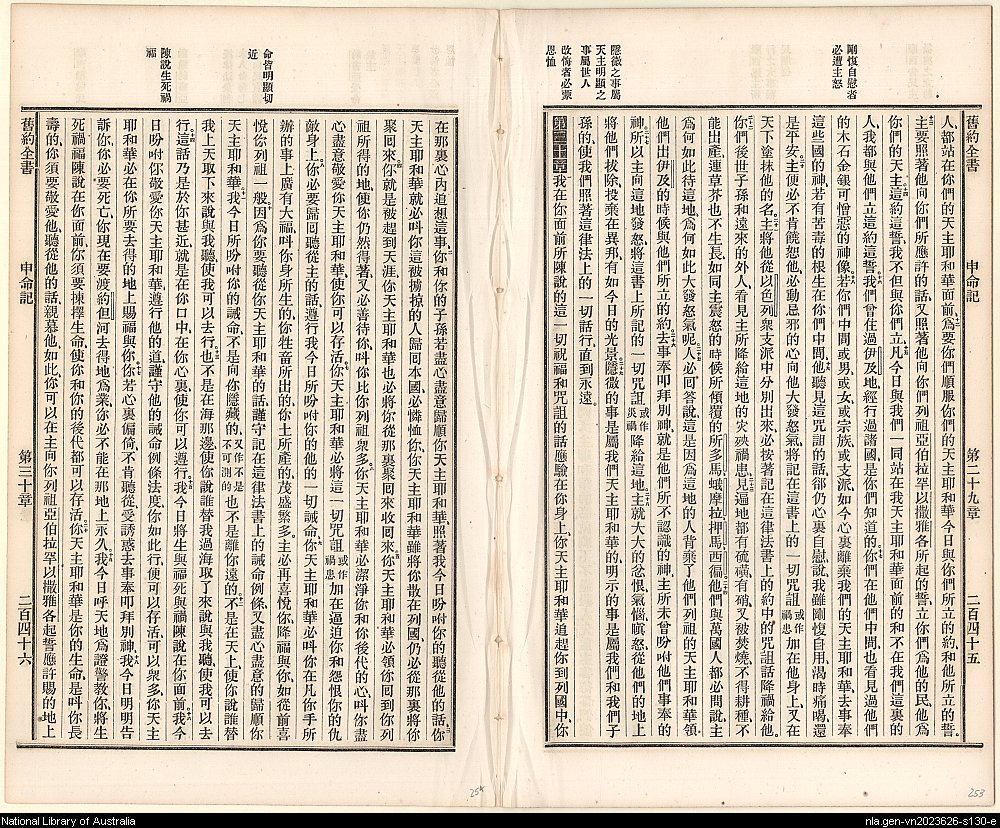 剛愎自慰者
必遭主怒
隱微之事屬
天主明顯之
事屬世人
改悔者必蒙
恩恤
舊約全書 申命記 第二十九章 二百四十五
人都站在你們的天主耶和華面前爲要你們順服你們的天主耶和華今日與你們所立的約和他所立的誓
主要照著他向你們所應許的話又照著他向你們列祖亞伯拉罕以撒雅各所起的誓立你們爲他的民他爲
你們的天主這約這誓我不但與你們立凡今日與我們一同站在我天主耶和華面前的和不在我們這裏的
人我都與他們立這約這誓我們曾住過伊及地經行過諸國是你們知道的你們在他們中間也看見過他們
的木石金銀可憎惡的神像若你們中間或男或女或宗族或支派如今心裏離棄我們的天主耶和華去事奉
這些國的神若有苦毒的根生在你們中間他聽見這咒詛的話卻仍心裏自慰說我雖剛愎自用渴時痛喝還
是平安主便必不肯饒恕他必動忌邪的心向他大發怒氣將記在這書上的一切咒詛或作禍患加在他身上又在
天下塗抹他的名主將他從以色列衆支派中分別出來必按著記在這律法書上的約中的咒詛話降禍給他
你們後世子孫和遠來的外人看見主所降給這地的災殃禍患見遍地都有硫磺有硝又被焚燒不得耕種不
能出產連草芥也不生長如同主震怒的時候所傾覆的所多馬蛾摩拉押馬西徧他們與萬國人都必問說主
爲何如此待這地爲何如此大發怒氣呢人必囘答說這是因爲這地的人背棄了他們列祖的天主耶和華領
他們出伊及的時候與他們所立的約去事奉叩拜別神就是他們所不認識的神主所未曾吩咐他們事奉的
神所以主向這地發怒將這書上所記的一切咒詛或作災禍降給這地主就大大的忿恨氣惱嗔怒從他們的地上
將他們拔除拋棄在異邦有如今日的光景隱微的事是屬我們天主耶和華的明示的事是屬我們和我們子
孫的使我們照著這律法上的一切話行直到永遠
第三十章我在你面前所陳說的這一切祝福和咒詛的話應驗在你身上你天主耶和華追趕你到列國中你
253
命皆明顯切
近
陳說生死禍
福
在那裏心內追想這事你和你的子孫若盡心盡意歸順你天主耶和華照著我今日吩咐你的聽從他的話你
天主耶和華就必叫你這被擄掠的人歸囘本國必憐恤你你天主耶和華雖將你散在列國仍必從那裏將你
聚囘來你就是被趕到天涯你天主耶和華也必將你從那裏聚囘來收囘來你天主耶和華必領你囘到你列
祖所得的地使你仍然得著又必善待你叫你比你列祖衆多你天主耶和華必潔淨你和你後代的心叫你盡
心盡意敬愛你天主耶和華使你可以存活你天主耶和華必將這一切咒詛或作禍患加在逼迫你和怨恨你的仇
敵身上你必要歸囘聽從主的話遵行我今日所吩咐你的他的一切誡命你天主耶和華必叫你在凡你手所
辦的事上廣有大福叫你身所生的你牲畜所出的你土所產的茂盛繁多主必再喜悅你降福與你如從前喜
悅你列祖一般因爲你要聽從你天主耶和華的話謹守記在這律法書上的誡命例條又盡心盡意的歸順你
天主耶和華我今日所吩咐你的誡命不是向你隱藏的又作不是不可測的也不是離你遠的不是在天上使你說誰替
我上天取下來說與我聽使我可以去行也不是在海那邊使你說誰替我過海取了來說與我聽使我可以去
行這話乃是於你甚近就是在你口中在你心裏使你可以遵行我今日將生與福死與禍陳說在你面前我今
日吩咐你敬愛你天主耶和華遵行他的道謹守他的誡命例條法度你如此行便可以存活可以衆多你天主
耶和華必在你所要去得的地上賜福與你你若心裏偏倚不肯聽從受誘惑去事奉叩拜別神我今日明明告
訴你你必要死亡你現在要渡約但河去得地爲業你必不能在那地上永久我今日呼天地爲證警教你將生
死禍福陳說在你面前你須要揀擇生命使你和你的後代都可以存活你天主耶和華是你的生命是叫你長
壽的你須要敬愛他聽從他的話親慕他如此你可以在主向你列祖亞伯拉罕以撒雅各起誓應許賜的地上
舊約全書 申命記 第三十章 二百四十六
254
National Library of Australia
nla.gen-vn2023626-s130-e